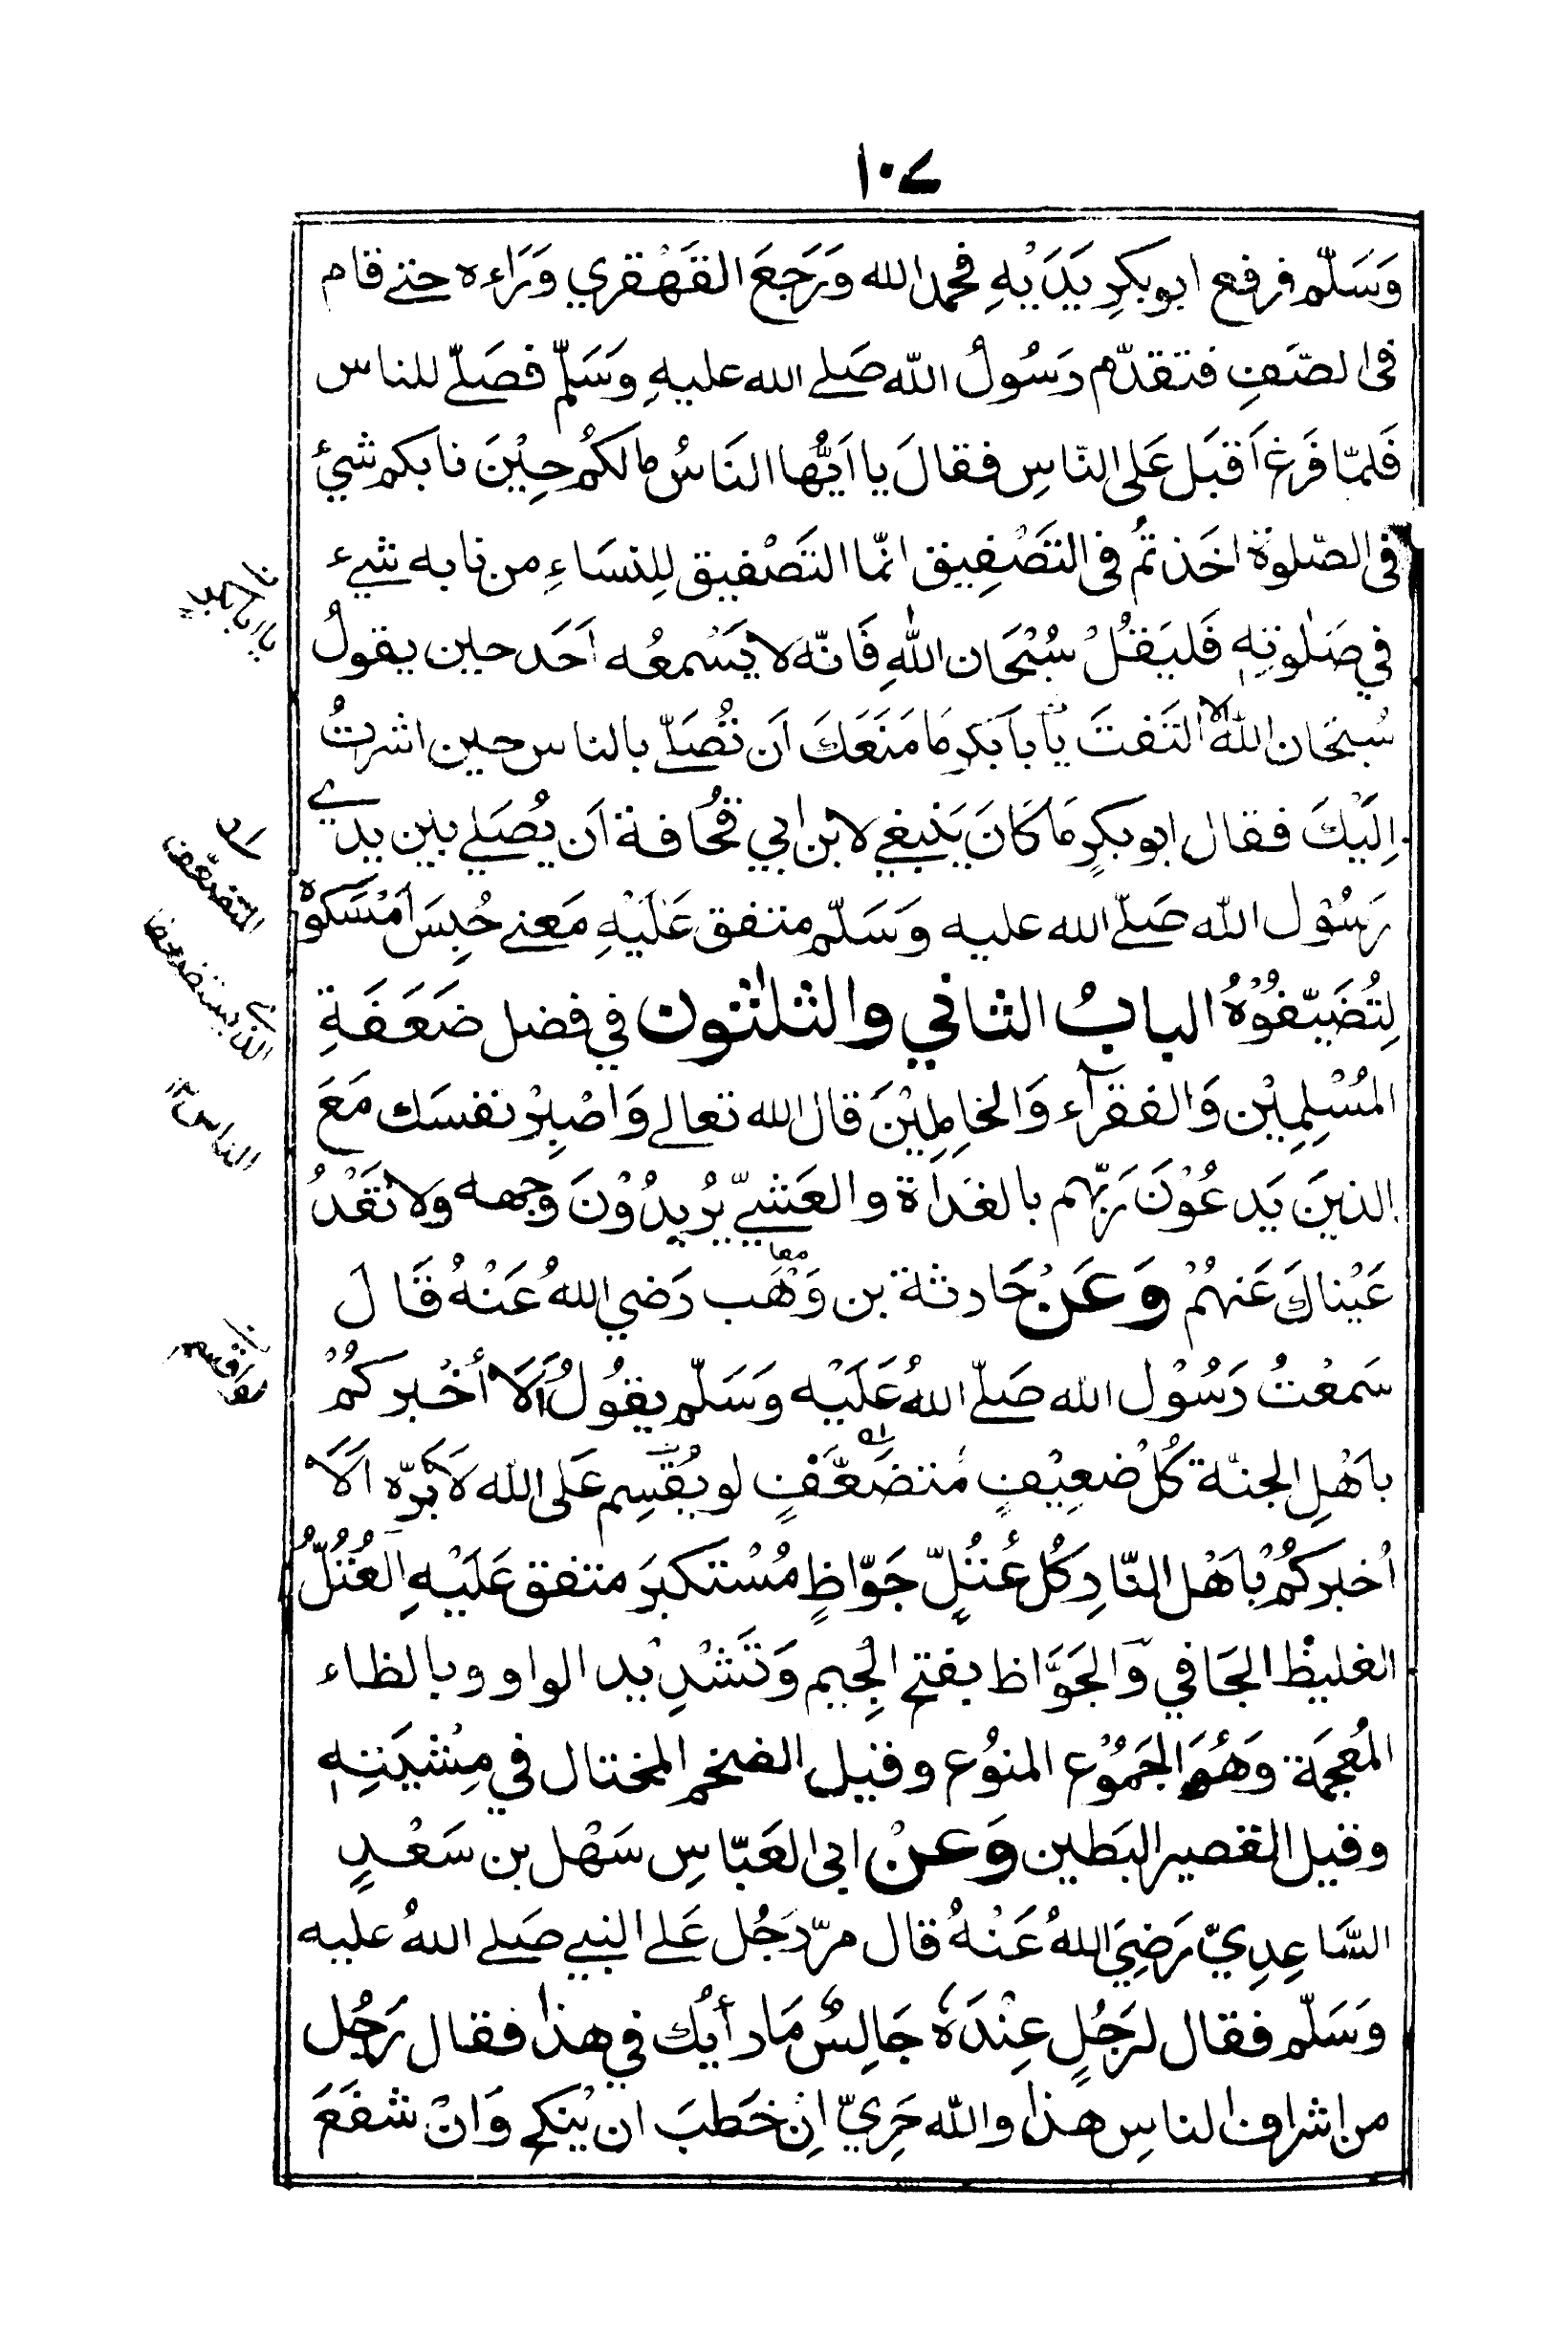 ١٠٧
وَسَلّم فرفع ابوبكرِ يَدَيْهِ فحمد الله وَرَجَعَ القَهْقري وَرَاءه حتے قام
فى الصّفِ فتقدّم رَسُولُ اللّه صَلے الله عليهِ وَسَلّم فصَلّے للناس
فَلمّا فَرَغ اَقبَل عَلى النّاسِ فقالَ يا اَيُّها النَاسُ مالكُم حِيْنَ نابكم شيْئٌ
فى الصّلوٰة اخَذتمُ فى التَصْفِيق انّما التَصْفيق لِلنسَاءِ من نابه شےء
في صَلوٰتِهٖ فَليَقُلْ سُبْحَان اللّٰهِ فَانّه لا يَسْمعُه اَحَد حين يقولُ
سُبحَان اللّٰه الا التَفتَ يا بابَكرِ مَا مَنَعَكَ اَن تُصَلّے بالناس حين اشرتُ
اِلَيْكَ فقال ابوبكرٍ مَا كَانَ يَنبغي لابن ابي قحُافة اَن يُصَلے بين يدے
رَسُوْل الله صَلّے الله عليه وَسَلّم متفق عَلَيْهِ مَعنے حُبِسَ اَمْسَكوْهُ
لِتُضَيّفُوْهُ البابُ الثاني والثلثون في فضل ضَعَفَةِ
المُسْلِمِيْن وَالفقرآء وَالخاِملِيْنَ قال الله تعالے وَاصْبِرْ نفسَك مَعَ
الذينَ يَدعُوْنَ رَبّهم بالغَدَاة والعَشيّ يُرِيدُوْنَ وجهه وَلا تَعْدُ
عَيْناكَ عَنهُمْ وَعَنْ حَارثة بن وَهْب رَضي اللهُ عَنْهُ قَالَ
سَمعْتُ رَسُوْل الله صَلّے اللهُ عَلَيْه وَسَلّم يقوُلُ اَلَا أخْبركُمْ
باَهْلِ الجنّة كُلُ ضعِيْفٍ مُتضَعَّفٍ لو يُقسِم عَلى اللّه لاَبَرّه اَلَا
اُخبركُمْ بأهْل النّارِ كُل عُتُلٍّ جَوّاظٍ مُسْتكبرَ متفق عَلَيْهِ العُتُلُّ
الغليظ الجَافي وَالجَوَّاظ بفتح الِجيم وَتَشْدِيْد الواو وبالظاء
المُعجَمَة وَهُوَ الجَمُوْع المنوُع وقيل الضخم المختال في مِشْيَتِهٖ
وقيل القصير البَطين وَعَنْ ابى العَبّاسِ سَهْل بن سَعْدٍ
السَّاعِدِيّ رَضِيَ اللهُ عَنْهُ قال مرّ رَجُل عَلے النبے صَلے اللهُ عليه
وَسَلّم فقال لرَجُلٍ عِنْدَهٗ جَالِسٌ مَا رأيُك في هذا فقال رَجُل
من اشراف الناسِ هذا والله حَرِيّ اِنْ خَطبَ ان يُنكح وَانْ شفَعَ
التضعّف
الذے يستضعفه
الناس ١٢